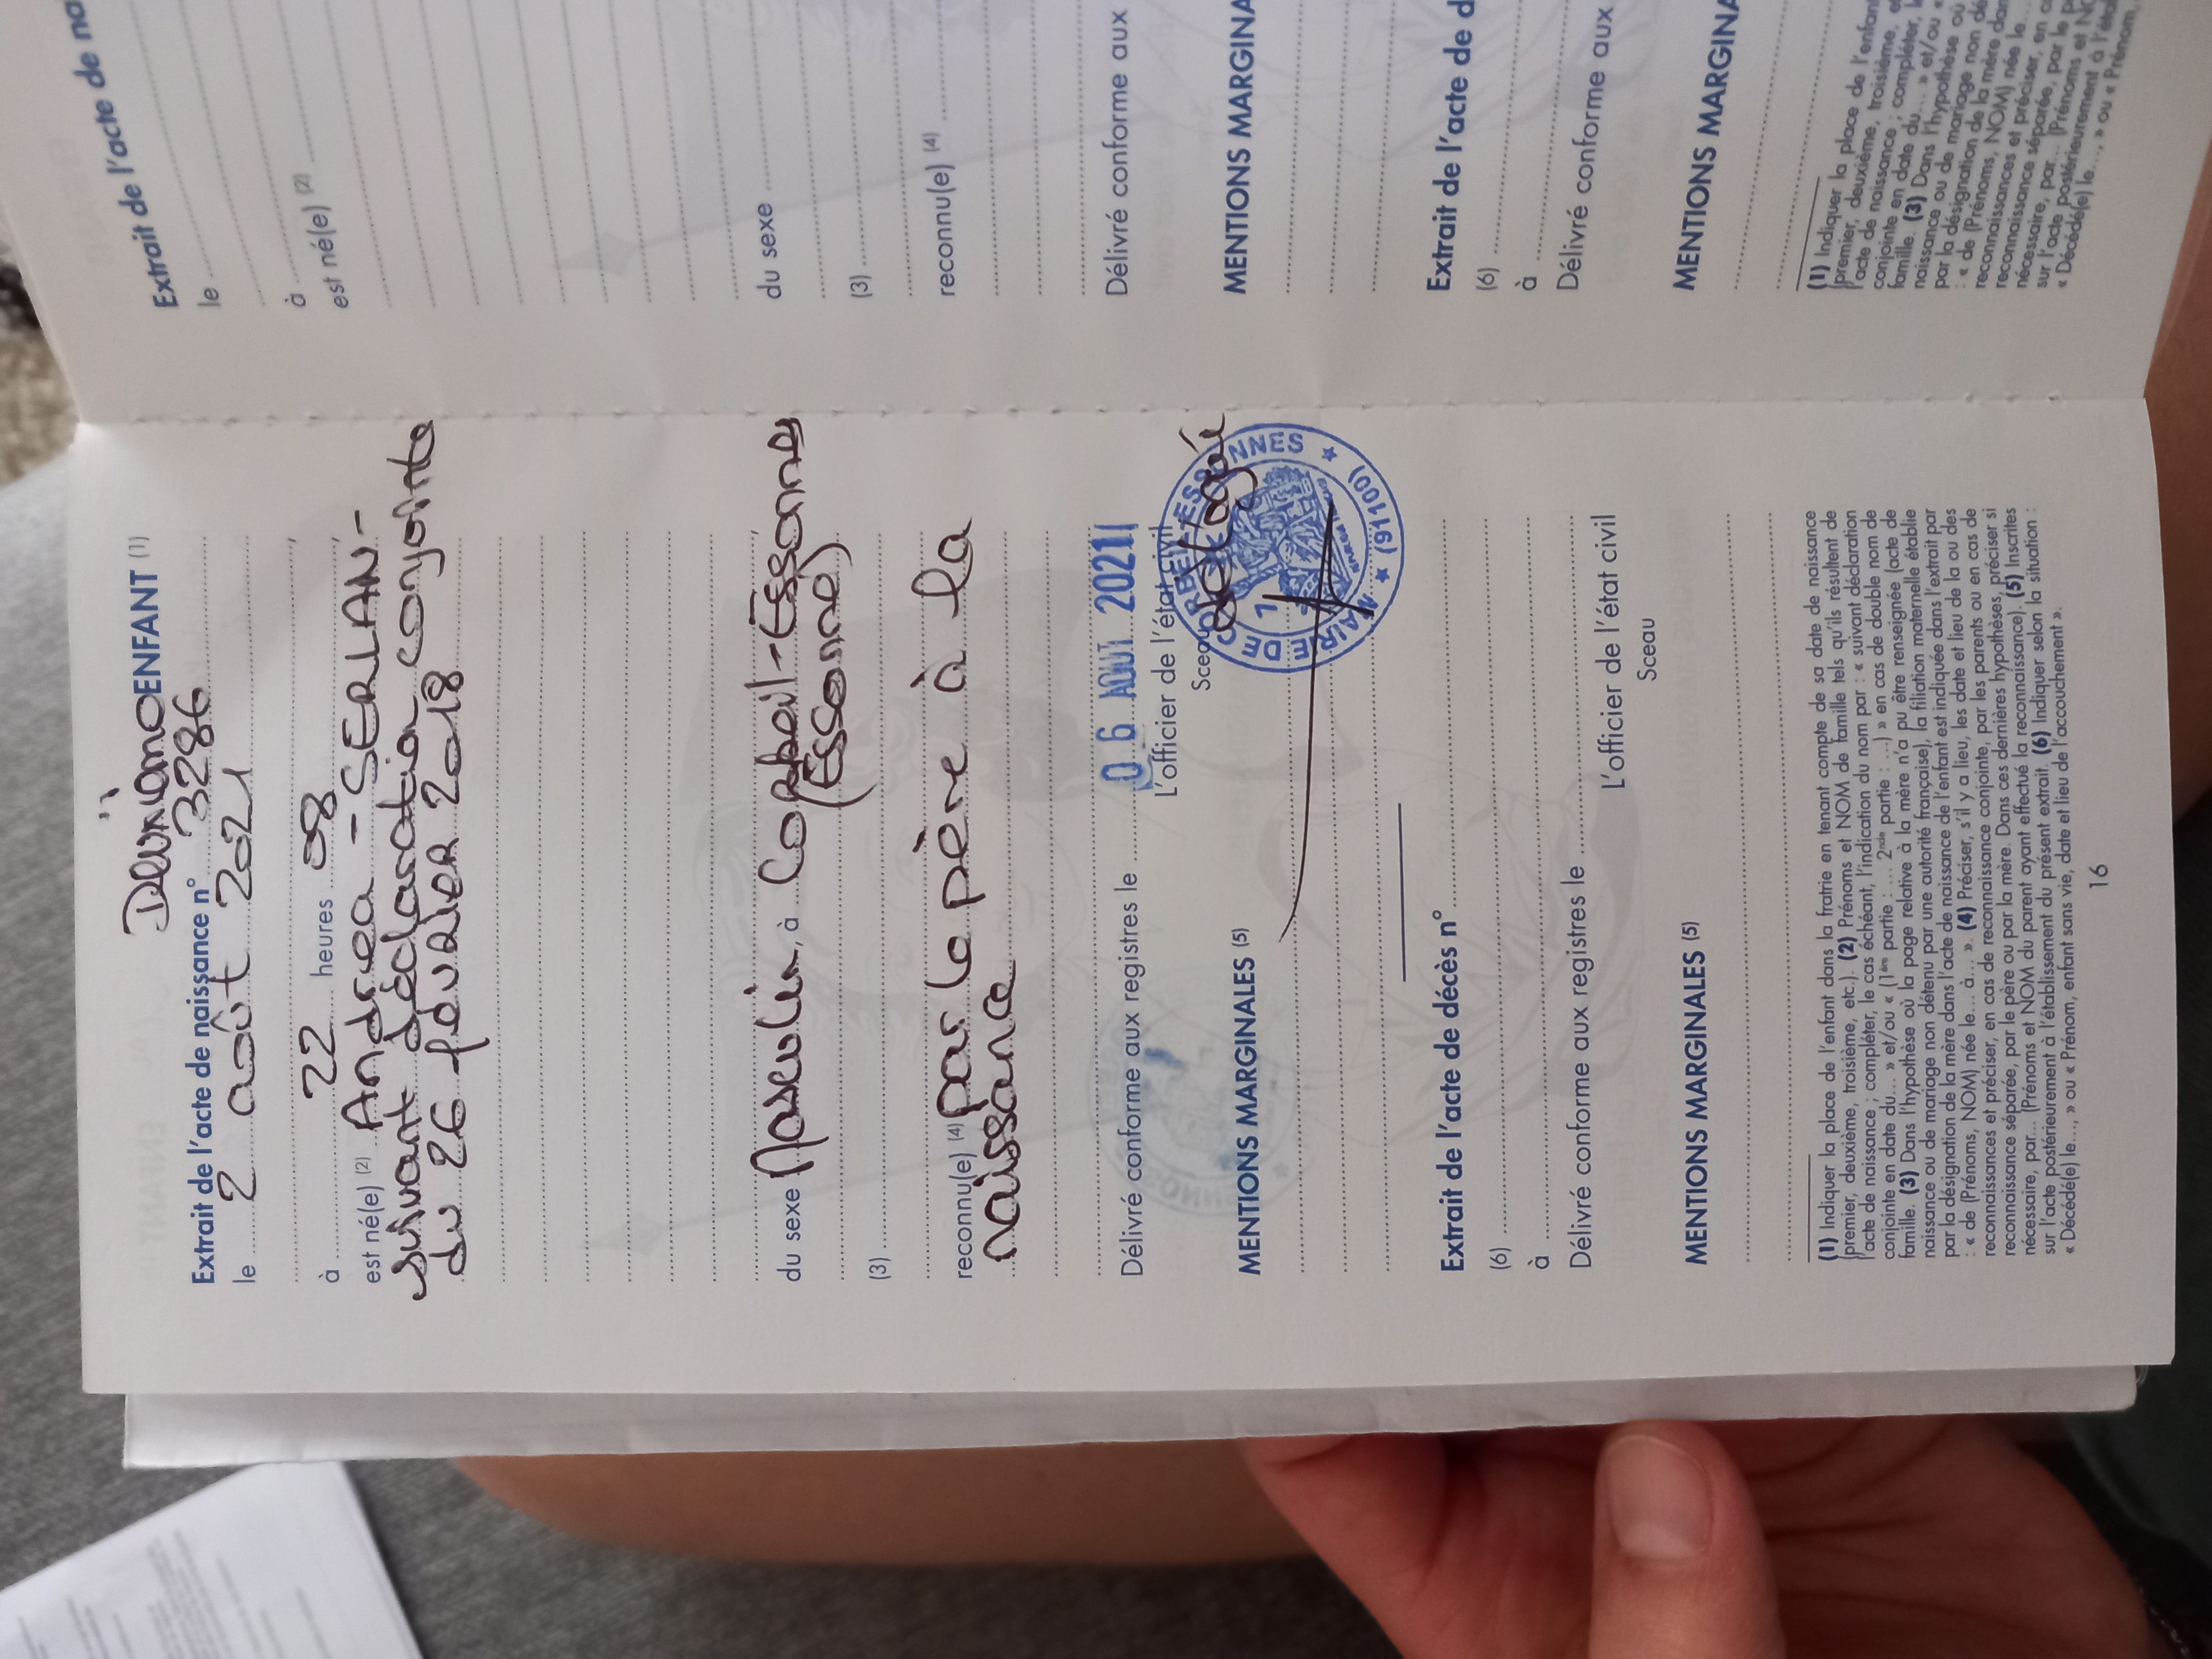 Deuxième ENFANT (1)
Extrait de l'acte de naissance n° 3286
le 2 août 2021
à 22 heures 08
est né(e) (2) Andrea - SERLAN-
suivant déclaration conjointe
du 26 février 2018
du sexe Masculin, à Corbeil-Essonnes
(Essonne)
(3)
reconnu(e) (4) par le père à la
naissance
Délivré conforme aux registres le 06 AOUT 2021
L'officier de l'état civil
Sceau délégué
MAIRIE DE CORBEIL-ESSONNES ★ (91100) ★
1
MENTIONS MARGINALES (5)
Extrait de l'acte de décès n°
(6)
à
Délivré conforme aux registres le
L'officier de l'état civil
Sceau
MENTIONS MARGINALES (5)
(1) Indiquer la place de l'enfant dans la fratrie en tenant compte de sa date de naissance
(premier, deuxième, troisième, etc.). (2) Prénoms et NOM de famille tels qu'ils résultent de
l'acte de naissance ; compléter, le cas échéant, l'indication du nom par : « suivant déclaration
conjointe en date du... » et/ou « (1ère partie : .... 2nde partie : ....) » en cas de double nom de
famille. (3) Dans l'hypothèse où la page relative à la mère n'a pu être renseignée (acte de
naissance ou de mariage non détenu par une autorité française), la filiation maternelle établie
par la désignation de la mère dans l'acte de naissance de l'enfant est indiquée dans l'extrait par
: « de (Prénoms, NOM) née le... à... ». (4) Préciser, s'il y a lieu, les date et lieu de la ou des
reconnaissances et préciser, en cas de reconnaissance conjointe, par les parents ou en cas de
reconnaissance séparée, par le père ou par la mère. Dans ces dernières hypothèses, préciser si
nécessaire, par... (Prénoms et NOM du parent ayant effectué la reconnaissance). (5) Inscrites
sur l'acte postérieurement à l'établissement du présent extrait. (6) Indiquer selon la situation :
« Décédé(e) le..., » ou « Prénom, enfant sans vie, date et lieu de l'accouchement ».
16
Extrait de l'acte de na
le
à
est né(e) (2)
du sexe
(3)
reconnu(e) (4)
Délivré conforme aux
MENTIONS MARGINA
Extrait de l'acte de d
(6)
à
Délivré conforme aux
MENTIONS MARGINA
(1) Indiquer la place de l'enfan
(premier, deuxième, troisième, e
l'acte de naissance ; compléter, l
conjointe en date du... » et/ou «
famille. (3) Dans l'hypothèse où
naissance ou de mariage non dé
par la désignation de la mère dan
: « de (Prénoms, NOM) née le...
reconnaissances et préciser, en c
reconnaissance séparée, par le p
nécessaire, par... (Prénoms et NO
sur l'acte postérieurement à l'éta
« Décédé(e) le..., » ou « Prénom,